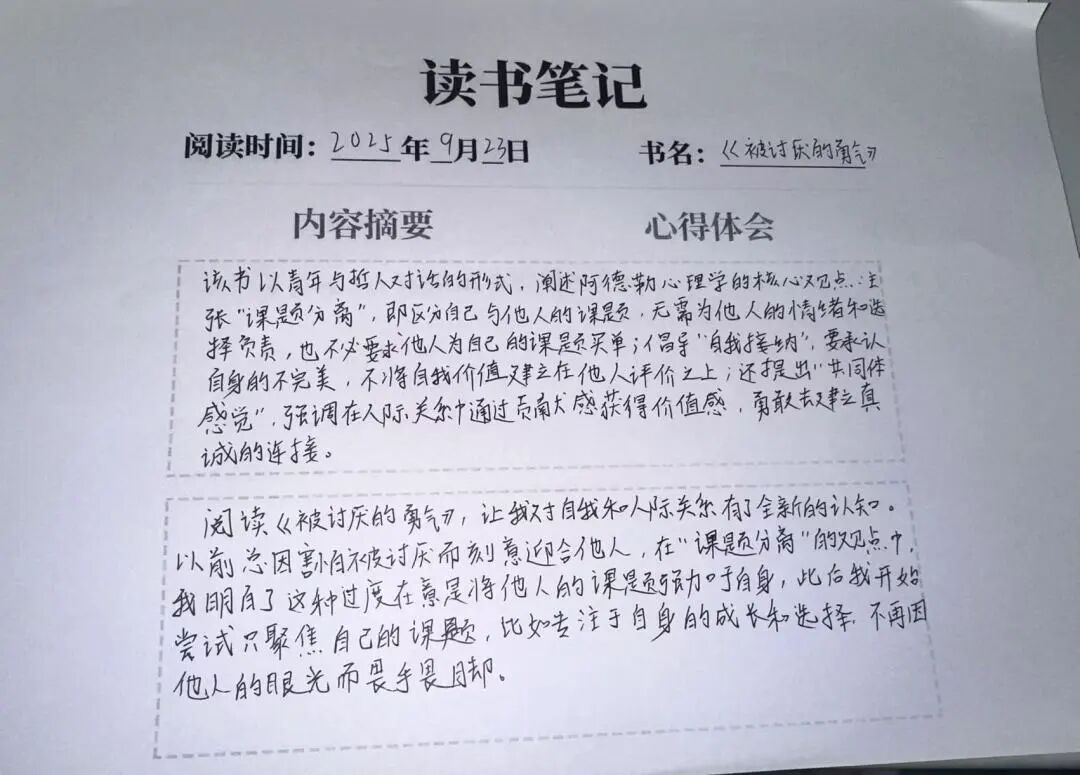 读书笔记
阅读时间：2025年9月23日 书名：《被讨厌的勇气》
内容摘要 心得体会
该书以青年与哲人对话的形式，阐述阿德勒心理学的核心观点：主
张“课题分离”，即区分自己与他人的课题，无需为他人的情绪和选
择负责，也不必要求他人为自己的课题买单；倡导“自我接纳”，要承认
自身的不完美，不将自我价值建立在他人评价之上；还提出“共同体
感觉”，强调在人际关系中通过贡献感获得价值感，勇敢去建立真
诚的连接。
阅读《被讨厌的勇气》，让我对自我和人际关系有了全新的认知。
以前总因害怕不被讨厌而刻意迎合他人，在“课题分离”的观点中，
我明白了这种过度在意是将他人的课题强加于自身，此后我开始
尝试只聚焦自己的课题，比如专注于自身的成长和选择，不再因
他人的眼光而畏手畏脚。